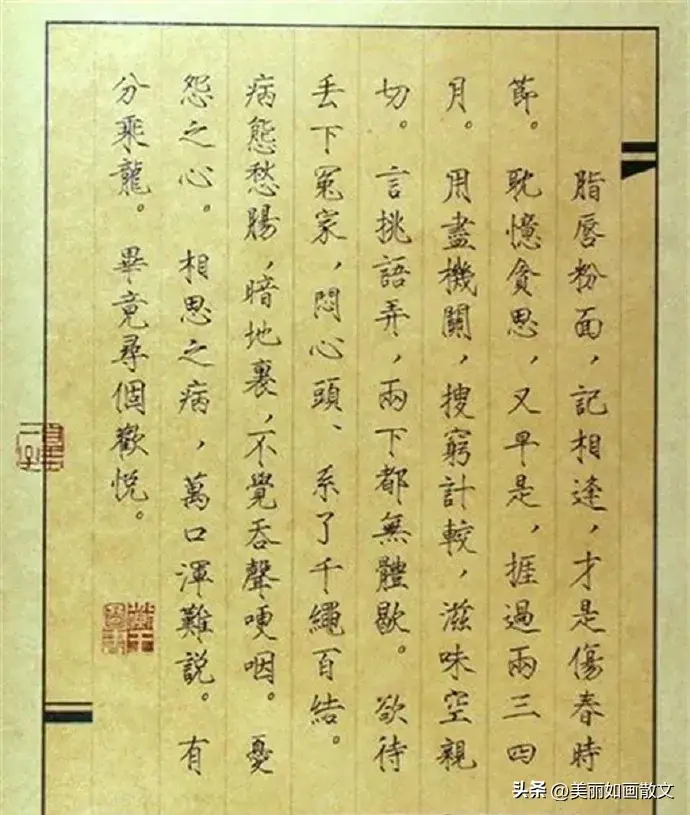 脂唇粉面，記相逢，才是傷春時
節。耽憶貪思，又早是，捱過兩三四
月。用盡機關，搜窮計較，滋味空親
切。言挑語弄，兩下都無體歇。欲待
丟下冤家，悶心頭、系了千繩百結。
病態愁腸，暗地裏，不覺吞聲哽咽。憂
怨之心。相思之病，萬口渾難説。有
分乘龍。畢竟尋個歡悦。
头条 @美丽如画散文